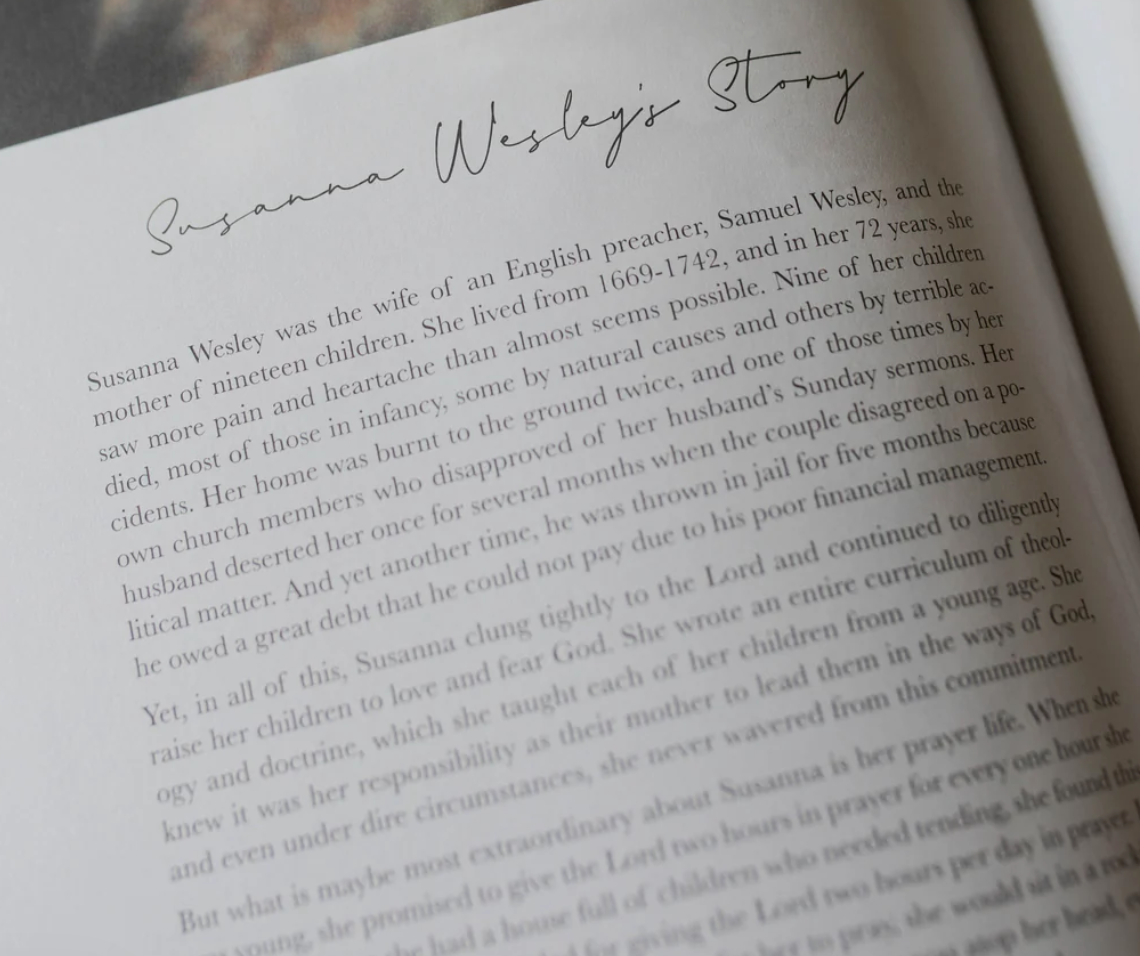 Susanna Wesley's Story
Susanna Wesley was the wife of an English preacher, Samuel Wesley, and the
mother of nineteen children. She lived from 1669-1742, and in her 72 years, she
saw more pain and heartache than almost seems possible. Nine of her children
died, most of those in infancy, some by natural causes and others by terrible ac-
cidents. Her home was burnt to the ground twice, and one of those times by her
own church members who disapproved of her husband's Sunday sermons. Her
husband deserted her once for several months when the couple disagreed on a po-
litical matter. And yet another time, he was thrown in jail for five months because
he owed a great debt that he could not pay due to his poor financial management.
Yet, in all of this, Susanna clung tightly to the Lord and continued to diligently
raise her children to love and fear God. She wrote an entire curriculum of theol-
ogy and doctrine, which she taught each of her children from a young age. She
knew it was her responsibility as their mother to lead them in the ways of God,
and even under dire circumstances, she never wavered from this commitment.
But what is maybe most extraordinary about Susanna is her prayer life. When she
young, she promised to give the Lord two hours in prayer for every one hour she
she had a house full of children who needed tending, she found this
for giving the Lord two hours per day in prayer.
her to pray, she would sit in a
her head,